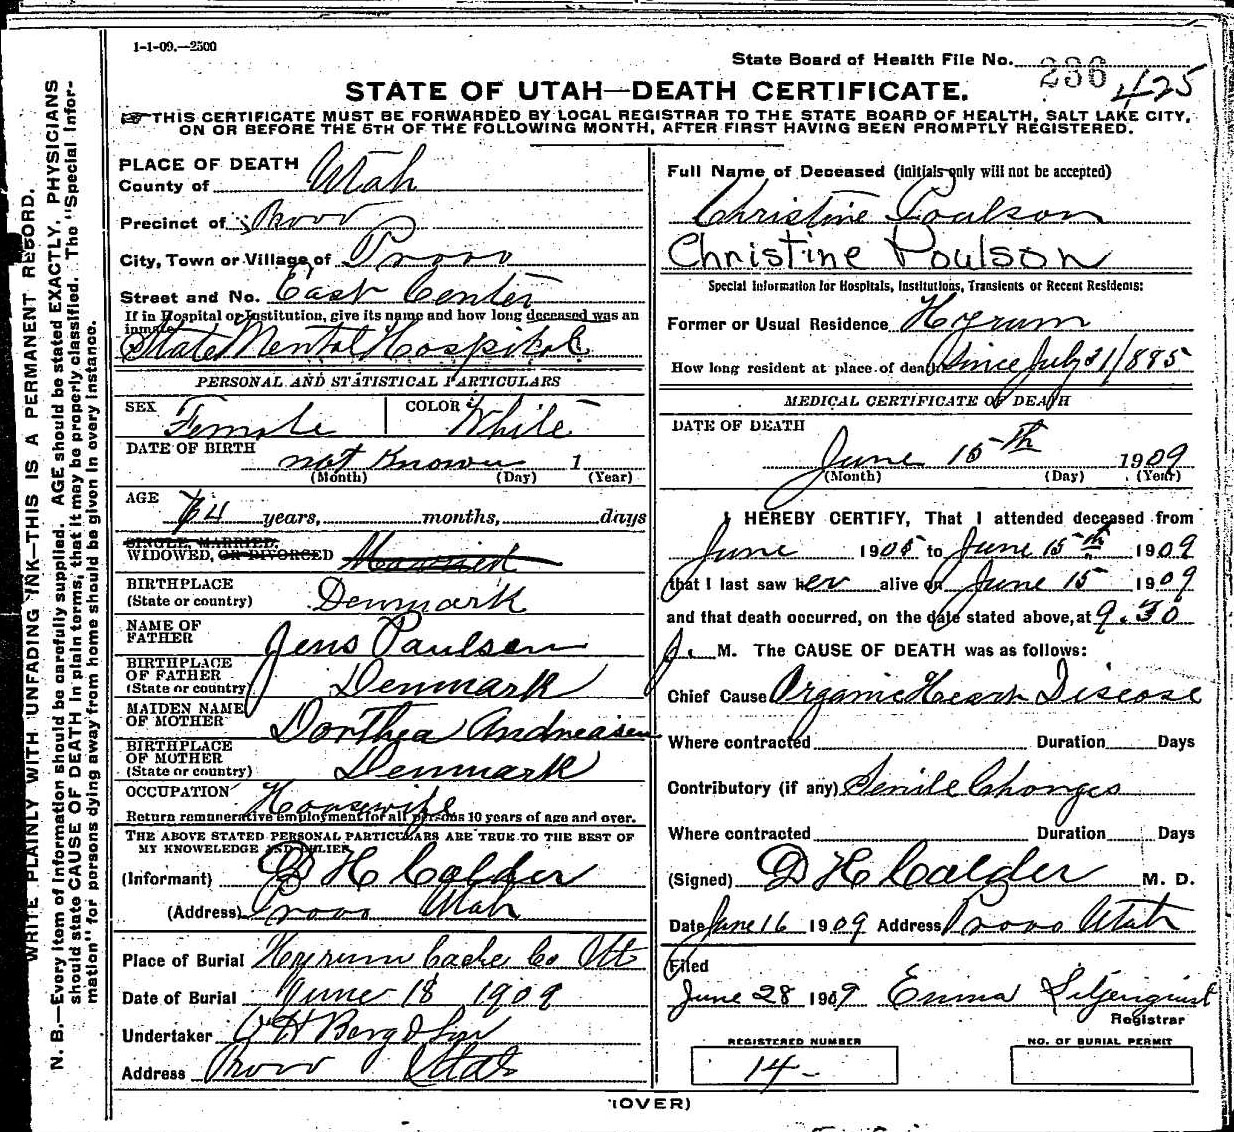 1-1-09.—2500
State Board of Health File No. 236 425
STATE OF UTAH—DEATH CERTIFICATE.
THIS CERTIFICATE MUST BE FORWARDED BY LOCAL REGISTRAR TO THE STATE BOARD OF HEALTH, SALT LAKE CITY,
ON OR BEFORE THE 5TH OF THE FOLLOWING MONTH, AFTER FIRST HAVING BEEN PROMPTLY REGISTERED.
WRITE PLAINLY WITH UNFADING INK—THIS IS A PERMANENT RECORD.
N. B.—Every item of information should be carefully supplied. AGE should be stated EXACTLY. PHYSICIANS
should state CAUSE OF DEATH in plain terms, that it may be properly classified. The "Special Infor-
mation" for persons dying away from home should be given in every instance.
PLACE OF DEATH
County of Utah
Precinct of Provo
City, Town or Village of Provo
Street and No. East Center
If in Hospital or Institution, give its name and how long deceased was an
inmate
State Mental Hospital
PERSONAL AND STATISTICAL PARTICULARS
SEX Female COLOR White
DATE OF BIRTH not Known 1
(Month) (Day) (Year)
AGE 64 years, months, days
SINGLE, MARRIED,
WIDOWED, OR DIVORCED Married
BIRTHPLACE
(State or country) Denmark
NAME OF
FATHER Jens Paulsen
BIRTHPLACE
OF FATHER
(State or country) Denmark
MAIDEN NAME
OF MOTHER Dorthea Andreasen
BIRTHPLACE
OF MOTHER
(State or country) Denmark
OCCUPATION Housewife
Return remunerative employment for all persons 10 years of age and over.
THE ABOVE STATED PERSONAL PARTICULARS ARE TRUE TO THE BEST OF
MY KNOWLEDGE AND BELIEF
(Informant) D H Calder
(Address) Provo Utah
Place of Burial Hyrum Cache Co Ut
Date of Burial June 18 1909
Undertaker O H Berg & Son
Address Provo Utah
Full Name of Deceased (initials only will not be accepted)
Christine Poulson
Christine Poulson
Special Information for Hospitals, Institutions, Transients or Recent Residents:
Former or Usual Residence Hyrum
How long resident at place of death Since July 21/1885
MEDICAL CERTIFICATE OF DEATH
DATE OF DEATH
June 15th 1909
(Month) (Day) (Year)
I HEREBY CERTIFY, That I attended deceased from
June 1905 to June 15th 1909
that I last saw her alive on June 15 1909
and that death occurred, on the date stated above, at 9.30
M. The CAUSE OF DEATH was as follows:
Chief Cause Organic Heart Disease
Where contracted Duration Days
Contributory (if any) Senile Changes
Where contracted Duration Days
(Signed) D H Calder M. D.
Date June 16 1909 Address Provo Utah
Filed
June 28 1909 Emma Liljenquist
Registrar
REGISTERED NUMBER
14-
NO. OF BURIAL PERMIT
(OVER)